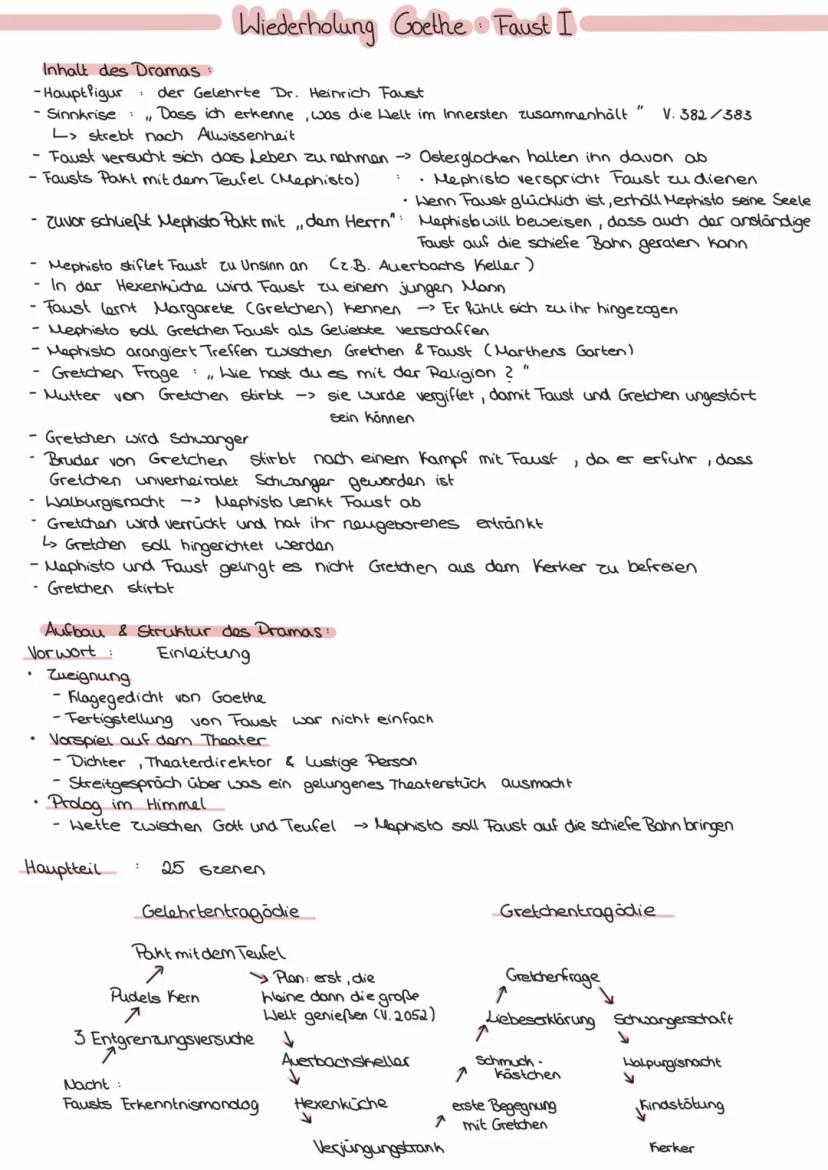 Wiederholung Goethe : Faust I
Inhalt des Dramas :
- Hauptfigur : der Gelehrte Dr. Heinrich Faust
- Sinnkrise : „ Dass ich erkenne , was die Welt im Innersten zusammenhält " V. 382/383
↳ strebt nach Allwissenheit
- Faust versucht sich das Leben zu nehmen → Osterglocken halten ihn davon ab
- Fausts Pakt mit dem Teufel (Mephisto) : • Mephisto verspricht Faust zu dienen
• Wenn Faust glücklich ist, erhält Mephisto seine Seele
- zuvor schließt Mephisto Pakt mit „ dem Herrn" : Mephisto will beweisen , dass auch der anständige
Faust auf die schiefe Bahn geraten kann
- Mephisto stiftet Faust zu Unsinn an (z.B. Auerbachs Keller )
- In der Hexenküche wird Faust zu einem jungen Mann
- Faust lernt Margarete (Gretchen) kennen → Er fühlt sich zu ihr hingezogen
- Mephisto soll Gretchen Faust als Geliebte verschaffen
- Mephisto arangiert Treffen zwischen Gretchen & Faust (Marthens Garten)
- Gretchen Frage : „ Wie hast du es mit der Religion ? "
- Mutter von Gretchen stirbt → sie wurde vergiftet , damit Faust und Gretchen ungestört
sein können
- Gretchen wird Schwanger
- Bruder von Gretchen stirbt nach einem Kampf mit Faust , da er erfuhr , dass
Gretchen unverheiratet Schwanger geworden ist
- Walburgisnacht → Mephisto lenkt Faust ab
- Gretchen wird verrückt und hat ihr neugeborenes ertränkt
↳ Gretchen soll hingerichtet werden
- Mephisto und Faust gelingt es nicht Gretchen aus dem Kerker zu befreien
- Gretchen stirbt
Aufbau & Struktur des Dramas :
Vorwort : Einleitung
• Zueignung
- Klagegedicht von Goethe
- Fertigstellung von Faust war nicht einfach
• Vorspiel auf dem Theater
- Dichter , Theaterdirektor & Lustige Person
- Streitgespräch über was ein gelungenes Theaterstück ausmacht
• Prolog im Himmel
- Wette zwischen Gott und Teufel → Mephisto soll Faust auf die schiefe Bahn bringen
Hauptteil : 25 szenen
Gelehrtentragödie
Nacht :
Fausts Erkenntnismonolog
3 Entgrenzungsversuche
Pudels Kern
Pakt mit dem Teufel
Plan : erst , die
kleine dann die große
Welt genießen (V. 2052)
Auerbachskeller
Hexenküche
Verjüngungstrank
Gretchentragödie
erste Begegnung
mit Gretchen
Schmuck -
kästchen
Liebeserklärung
Gretchenfrage
Schwangerschaft
Walpurgisnacht
Kindstötung
Kerker